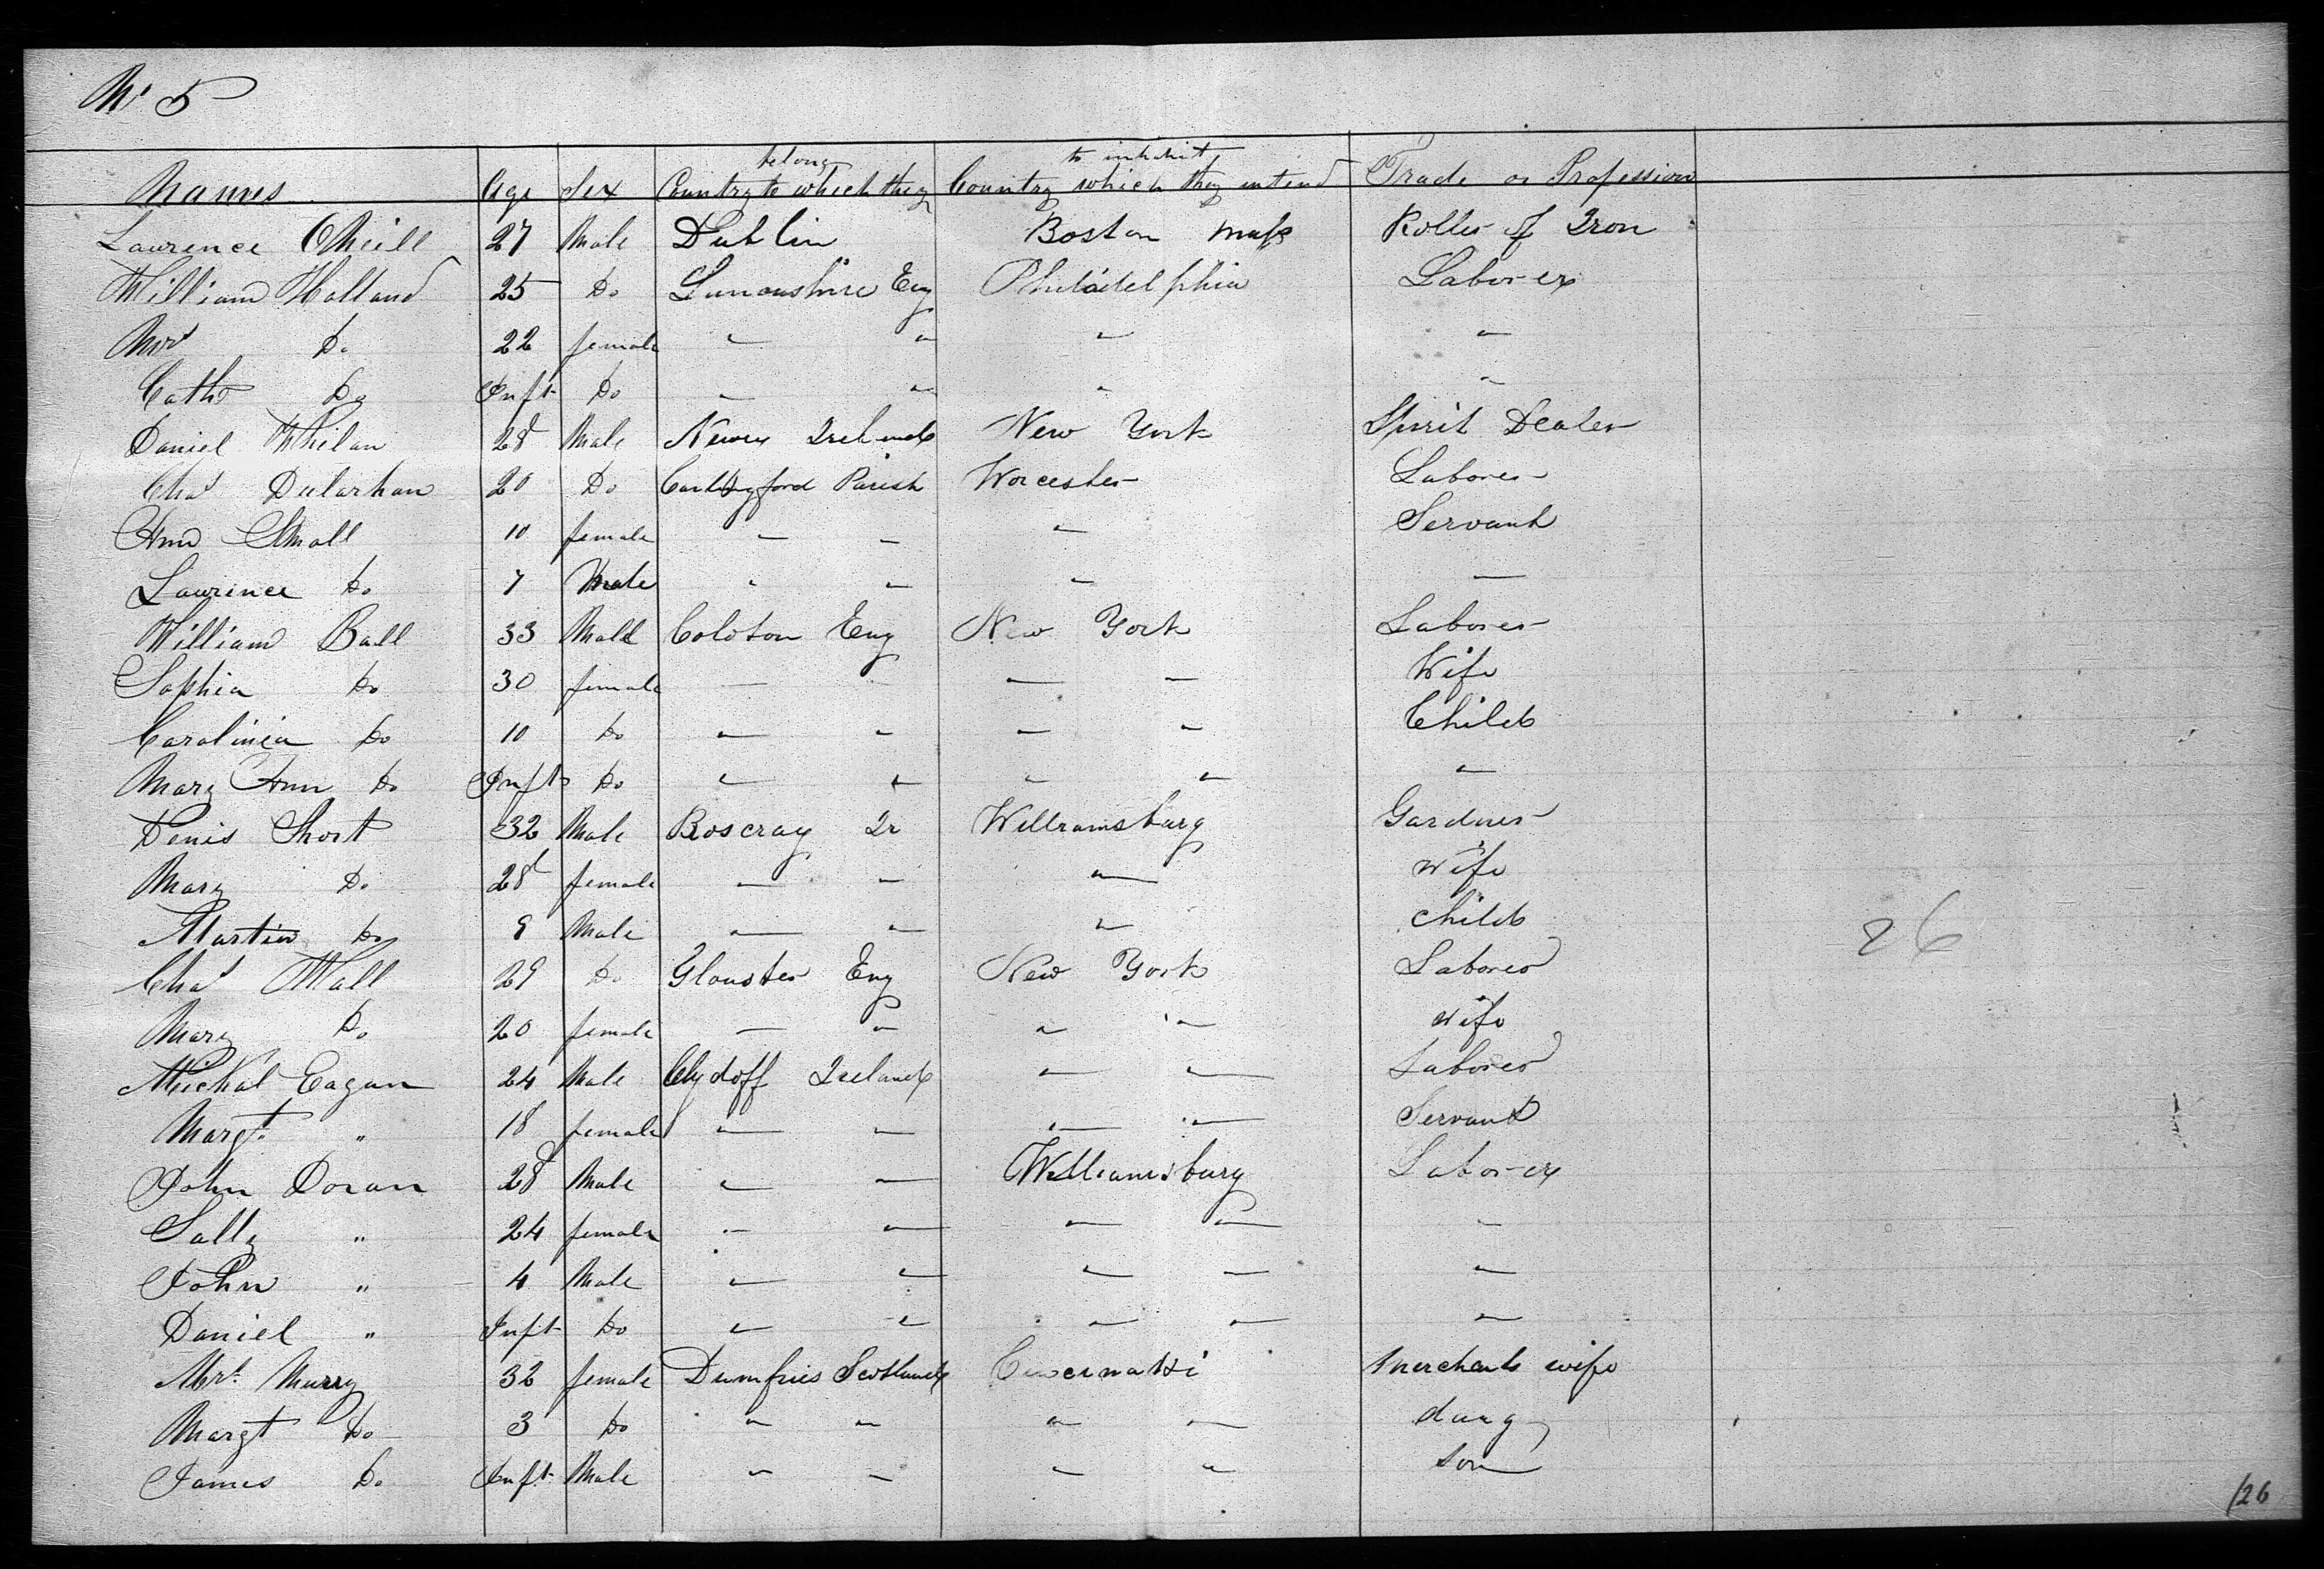 No 5
belong to inhabit
Names Age Sex Country to which they Country which they intend Trade or Profession
Lawrence ONeill 27 Male Dublin Boston Mass Roller of Iron
William Holland 25 Do Eng Philadelphia Laborer
Mrs Do 22 female " " " "
Cath Do Inft Do " " " "
Daniel Whilan 28 Male Newry Ireland New York Spirit Dealer
Chas Dularhan 20 Do Carlingford Parish Worcester Laborer
Ann Small 10 female " " " Servant
Lawrince Do 7 Male " " " "
William Ball 33 Male Coloton Eng New York Laborer
Sophia Do 30 female " " " " Wife
Carolinia Do 10 Do " " " " Child
Mary Ann Do Inft Do " " " " "
Denis Short 32 Male Boscray Ir Williamsburg Gardner
Mary Do 28 female " " " wife
Martin Do 9 Male " " " child
Chas Wall 29 Do Glouster Eng New York Laborer
Mary Do 20 female " " " " wife
Michal Eagan 24 Male Clydoff Ireland " " Laborer
Margt " 18 female " " " " Servant
John Doran 28 Male " " Williamsburg Laborer
Sally " 24 female " " " " "
John " 4 Male " " " " "
Daniel " Inft Do " " " " "
Mrs. Murry 32 female Dumfries Scotland Cincernatti Merchants wife
Margt Do 3 Do " " " " daug
James Do Inft Male " " " " son
26
126